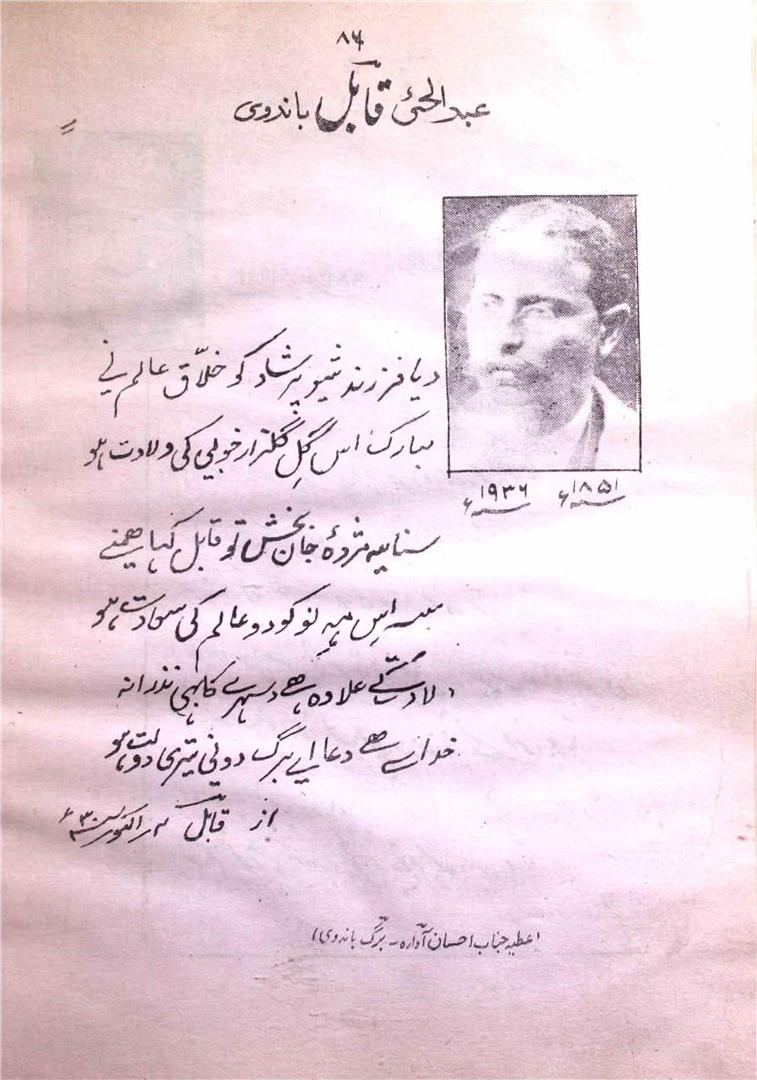 ۸۶
عبدالحئ قابل باندوی
دیا فرزند شیو پرشاد کو خلّاق عالم نے
مبارک اس گلِ گلزار خوبی کی ولادت ہو
۱۸۵۱ء ۱۹۳۶ء
سنا یہ مژدۂ جان بخش تو قابل کہا ہمنے
اِس مہِ نو کو دو عالم کی سعادت ہو
ولادت کے علاوہ ہے دسہرے کا بھی نذرانہ
خدا سے ہے دعا اے برگ دونی تیری دولت ہو
از قابل اکتوبر ۳۰ء
(عطیہ جناب احسان آوارہ - برگ باندوی)